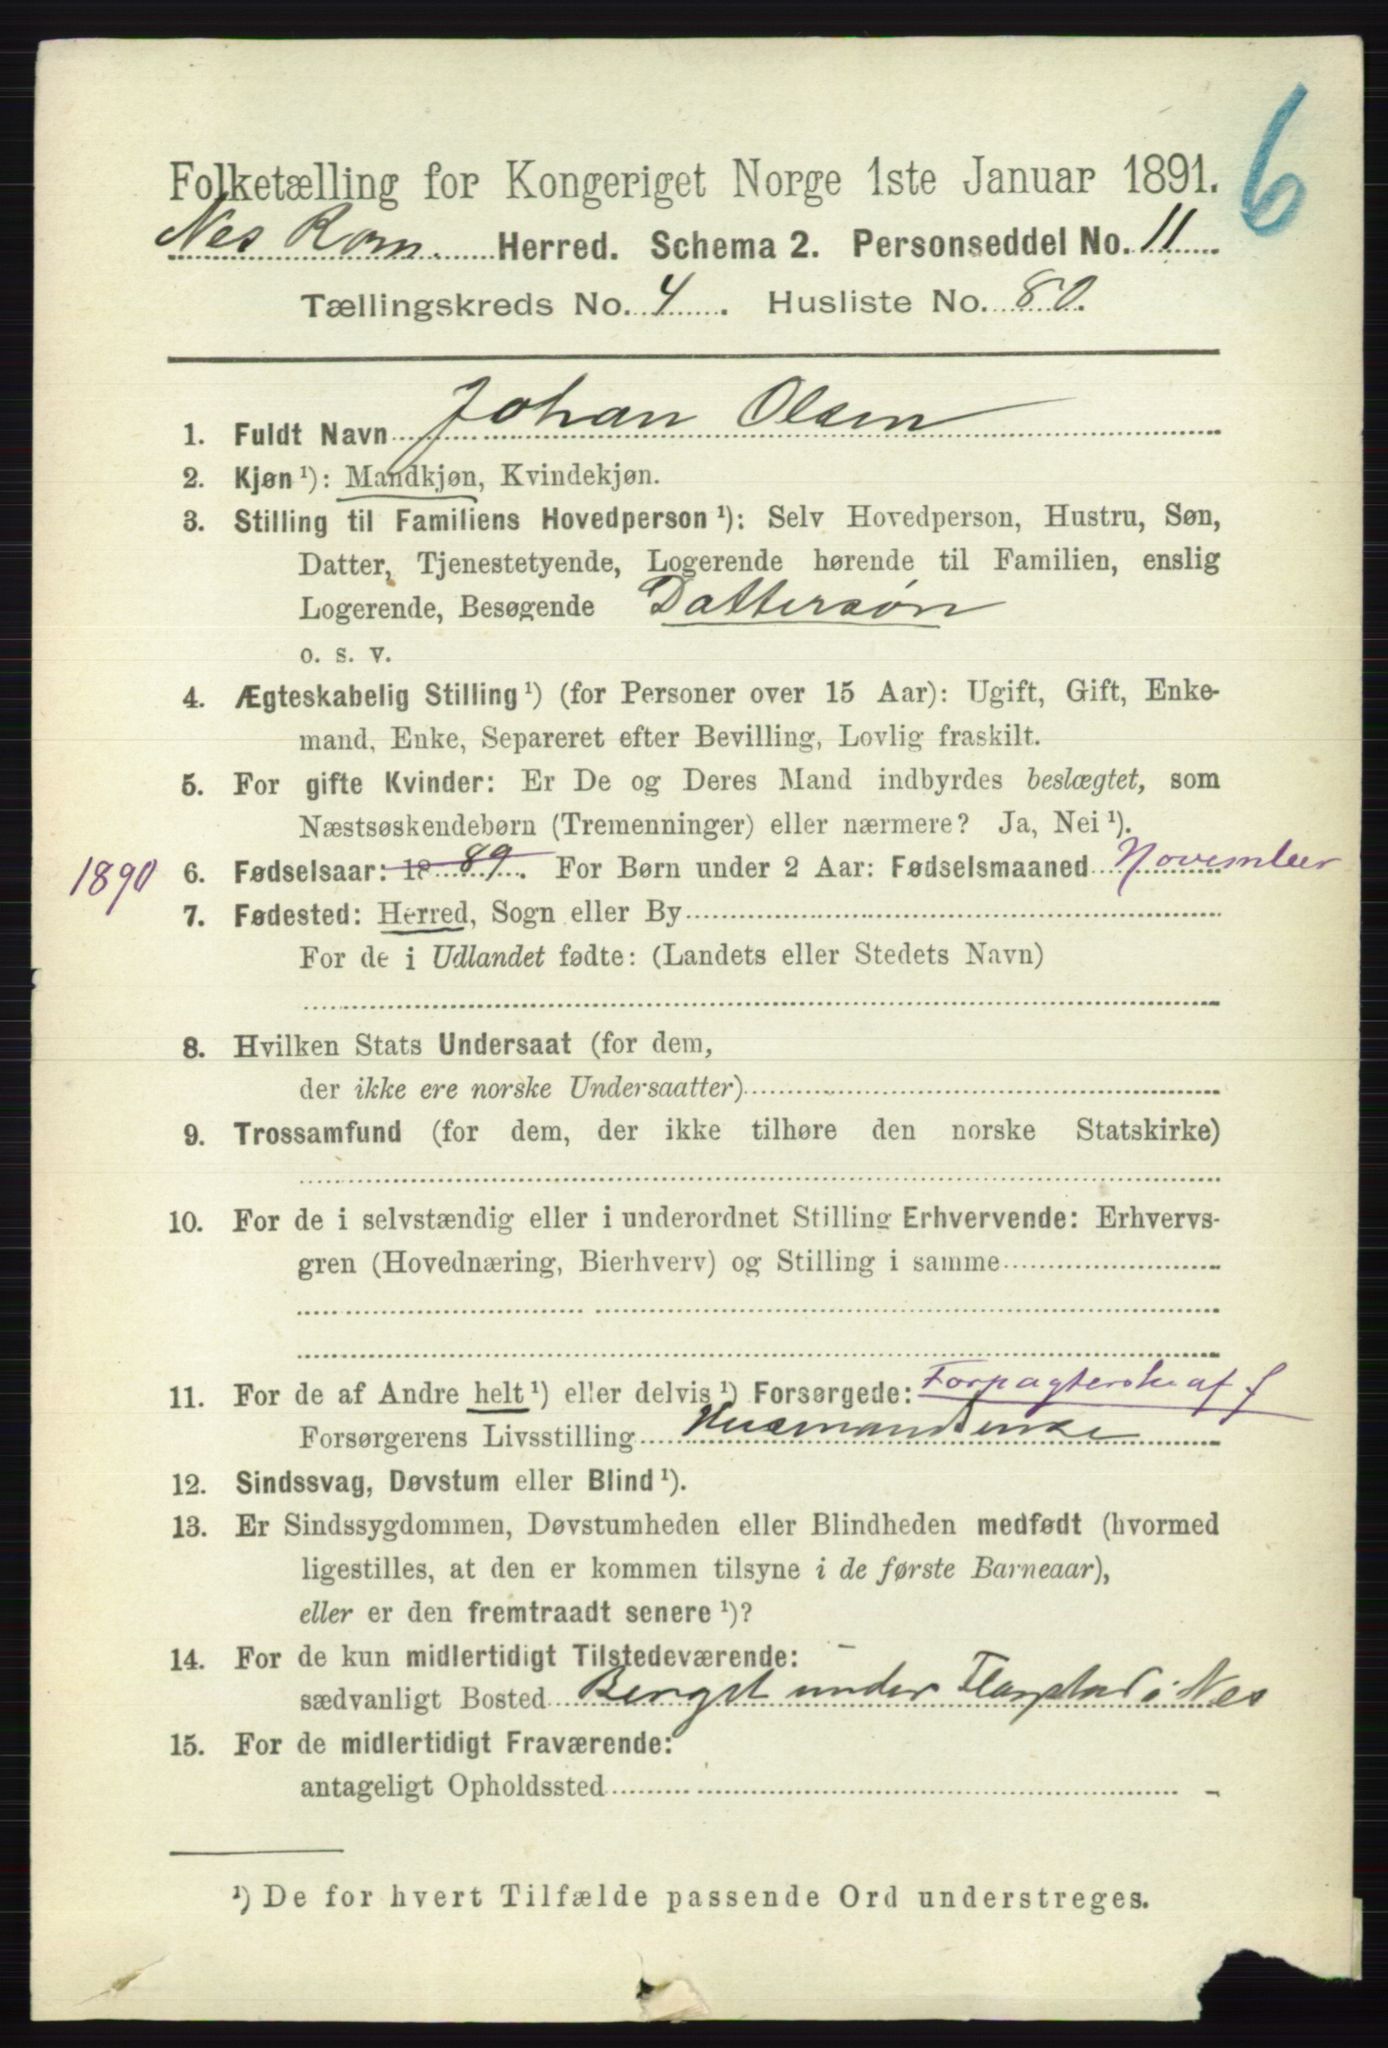 6
Folketælling for Kongeriget Norge 1ste Januar 1891.
Nes Rom. Herred. Schema 2. Personseddel No. 11
Tællingskreds No. 4. Husliste No. 80.
1. Fuldt Navn Johan Olsen
2. Kjøn ¹): Mandkjøn, Kvindekjøn.
3. Stilling til Familiens Hovedperson ¹): Selv Hovedperson, Hustru, Søn,
Datter, Tjenestetyende, Logerende hørende til Familien, enslig
Logerende, Besøgende Dattersøn
o. s. v.
4. Ægteskabelig Stilling ¹) (for Personer over 15 Aar): Ugift, Gift, Enke-
mand, Enke, Separeret efter Bevilling, Lovlig fraskilt.
5. For gifte Kvinder: Er De og Deres Mand indbyrdes beslægtet, som
Næstsøskendebørn (Tremenninger) eller nærmere? Ja, Nei ¹).
1890 6. Fødselsaar: 18 89. For Børn under 2 Aar: Fødselsmaaned November
7. Fødested: Herred, Sogn eller By
For de i Udlandet fødte: (Landets eller Stedets Navn)
8. Hvilken Stats Undersaat (for dem,
der ikke ere norske Undersaatter)
9. Trossamfund (for dem, der ikke tilhøre den norske Statskirke)
10. For de i selvstændig eller i underordnet Stilling Erhvervende: Erhvervs-
gren (Hovednæring, Bierhverv) og Stilling i samme
11. For de af Andre helt ¹) eller delvis ¹) Forsørgede: Forpagterske af
Forsørgerens Livsstilling Husmandsenke
12. Sindssvag, Døvstum eller Blind ¹).
13. Er Sindssygdommen, Døvstumheden eller Blindheden medfødt (hvormed
ligestilles, at den er kommen tilsyne i de første Barneaar),
eller er den fremtraadt senere ¹)?
14. For de kun midlertidigt Tilstedeværende:
sædvanligt Bosted under i Nes
15. For de midlertidigt Fraværende:
antageligt Opholdssted
¹) De for hvert Tilfælde passende Ord understreges.